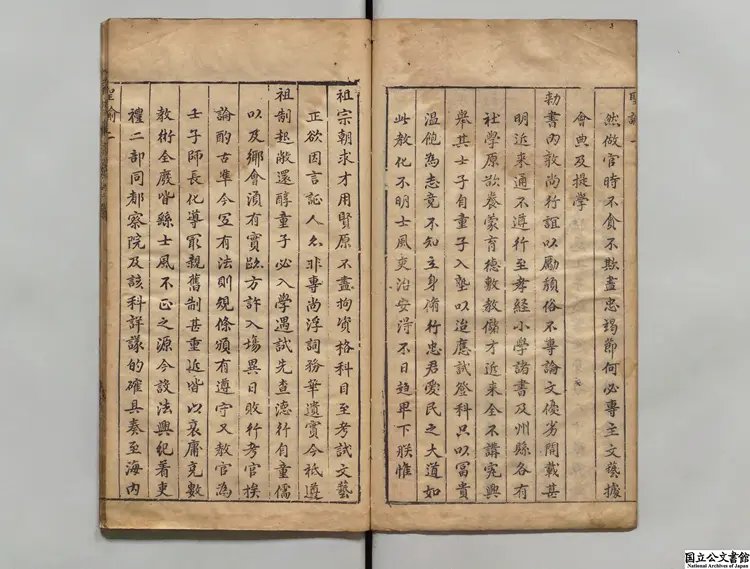 聖諭一
然做官時不貪不欺盡忠竭節何必專主文藝據
會典及提學
勅書內敦尚行誼以勵頹俗不專論文優劣開載甚
明近來通不遵行至孝經小學諸書及州縣各有
社學原欲養蒙育德敷教儲才近來全不講究興
舉其士子自童子入塾以迨應試登科只以富貴
溫飽為志竟不知立身脩行忠君愛民之大道如
此教化不明士風吏治安得不日趋卑下朕惟
祖宗朝求才用賢原不盡拘資格科目至考試文藝
正欲因言証人亦非專尚浮詞務華遺實今祗遵
祖制起敝還醇童子必入學遇試先查德行自童儒
以及鄉會須有實蹟方許入場異日敗行考官挨
論酌古準今宜有法則規條頒有遵守又教官為
壬子師長化導最親舊制甚重近皆以衰庸充數
教術全廢皆緣士風不正之源今設法興紀著吏
禮二部同都察院及該科詳議的確具奏至海內
聖諭一
国立公文書館
National Archives of Japan